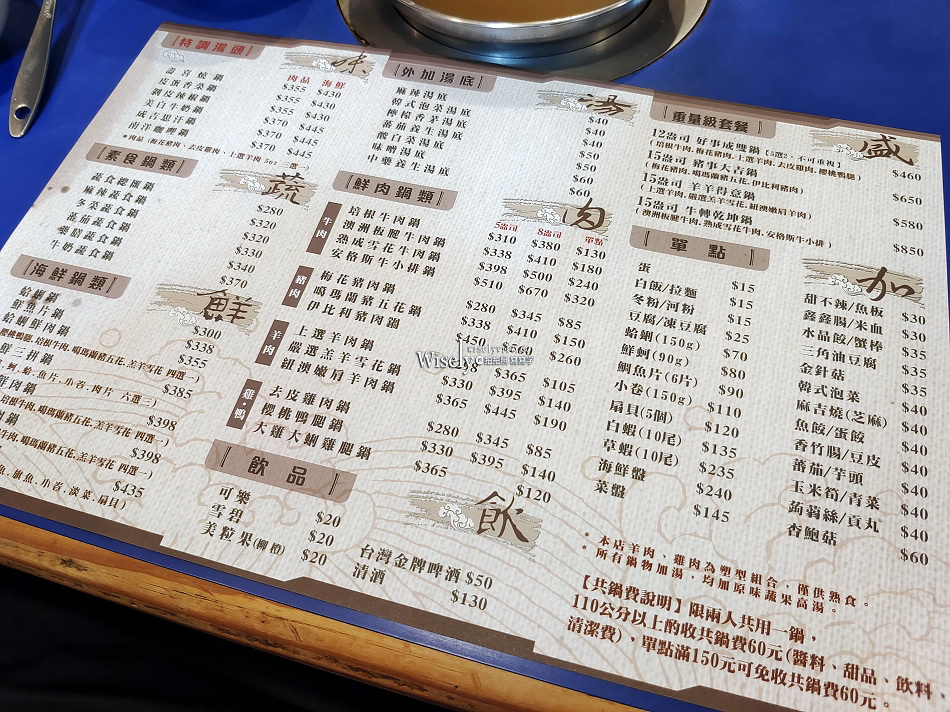 特調湯頭
味
肉品 海鮮
壽喜燒鍋 $355 $430
皮蛋香菜鍋 $355 $430
剝皮辣椒鍋 $355 $430
美白牛奶鍋 $370 $445
成吉思汗鍋 $370 $445
南洋咖哩鍋 $370 $445
*肉品 (梅花豬肉、去皮雞肉、上選羊肉 5oz 三選一)
素食鍋類
蔬
蔬食總匯鍋 $280
麻辣蔬食鍋 $320
冬菜蔬食鍋 $320
蕃茄蔬食鍋 $330
藥膳蔬食鍋 $340
牛奶蔬食鍋 $370
海鮮鍋類
鮮
蛤蜊鍋 $300
鮮魚片鍋 $338
蛤蜊鮮肉鍋 $355
櫻桃鴨腿、培根牛肉、噶瑪蘭豬五花、羔羊雪花 四選一)
鮮三拼鍋 $385
蚵、蛤、魚片、小卷、肉片 六選三)
鮮肉鍋 $398
培根牛肉、噶瑪蘭豬五花、羔羊雪花 四選一)
鍋 $398
牛肉、噶瑪蘭豬五花、羔羊雪花 四選一)
$435
魚、旗魚、小卷、淡菜、扇貝)
外加湯底
湯
麻辣湯底 $40
韓式泡菜湯底 $40
檸檬香茅湯底 $40
蕃茄養生湯底 $50
酸白菜湯底 $50
味噌湯底 $60
中藥養生湯底 $60
鮮肉鍋類
肉
5盎司 8盎司 單點
牛肉
培根牛肉鍋 $310 $380 $130
澳洲板腱牛肉鍋 $338 $410 $180
熟成雪花牛肉鍋 $398 $500 $240
安格斯牛小排鍋 $510 $670 $320
豬肉
梅花豬肉鍋 $280 $345 $85
噶瑪蘭豬五花鍋 $338 $410 $150
伊比利豬肉鍋 $450 $560 $260
羊肉
上選羊肉鍋 $365 $105
嚴選羔羊雪花鍋 $330 $395 $140
紐澳嫩肩羊肉鍋 $365 $445 $190
雞·鴨
去皮雞肉鍋 $280 $345 $85
櫻桃鴨腿鍋 $330 $395 $140
大雞大蜊雞腿鍋 $365 $120
飲品
飲
可樂 $20
雪碧 $20
美粒果(柳橙) $20
台灣金牌啤酒 $50
清酒 $130
重量級套餐
盛
12盎司 好事成雙鍋 【5選2，不可重複】 $460
(培根牛肉、梅花豬肉、上選羊肉、去皮雞肉、櫻桃鴨腿)
15盎司 豬事大吉鍋 $650
(梅花豬肉、噶瑪蘭豬五花、伊比利豬肉)
15盎司 羊羊得意鍋 $580
(上選羊肉、嚴選羔羊雪花、紐澳嫩肩羊肉)
15盎司 牛轉乾坤鍋 $850
(澳洲板腱牛肉、熟成雪花牛肉、安格斯牛小排)
單點
加
蛋 $15
白飯/拉麵 $15
冬粉/河粉 $15
豆腐/凍豆腐 $25
蛤蜊(150g) $70
鮮蚵(90g) $80
鯛魚片(6片) $90
小卷(150g) $110
扇貝(5個) $120
白蝦(10尾) $135
草蝦(10尾) $235
海鮮盤 $240
菜盤 $145
甜不辣/魚板 $30
鑫鑫腸/米血 $30
水晶餃/蟹棒 $35
三角油豆腐 $35
金針菇 $35
韓式泡菜 $40
麻吉燒(芝麻) $40
魚餃/蛋餃 $40
香竹腸/豆皮 $40
蕃茄/芋頭 $40
玉米筍/青菜 $40
蒟蒻絲/貢丸 $40
杏鮑菇 $60
*本店羊肉、雞肉為塑型組合，僅供熟食。
*所有鍋物加湯，均加原味蔬果高湯。
【共鍋費說明】限兩人共用一鍋，
110公分以上酌收共鍋費60元(醬料、甜品、飲料、
清潔費)，單點滿150元可免收共鍋費60元。
Wisely